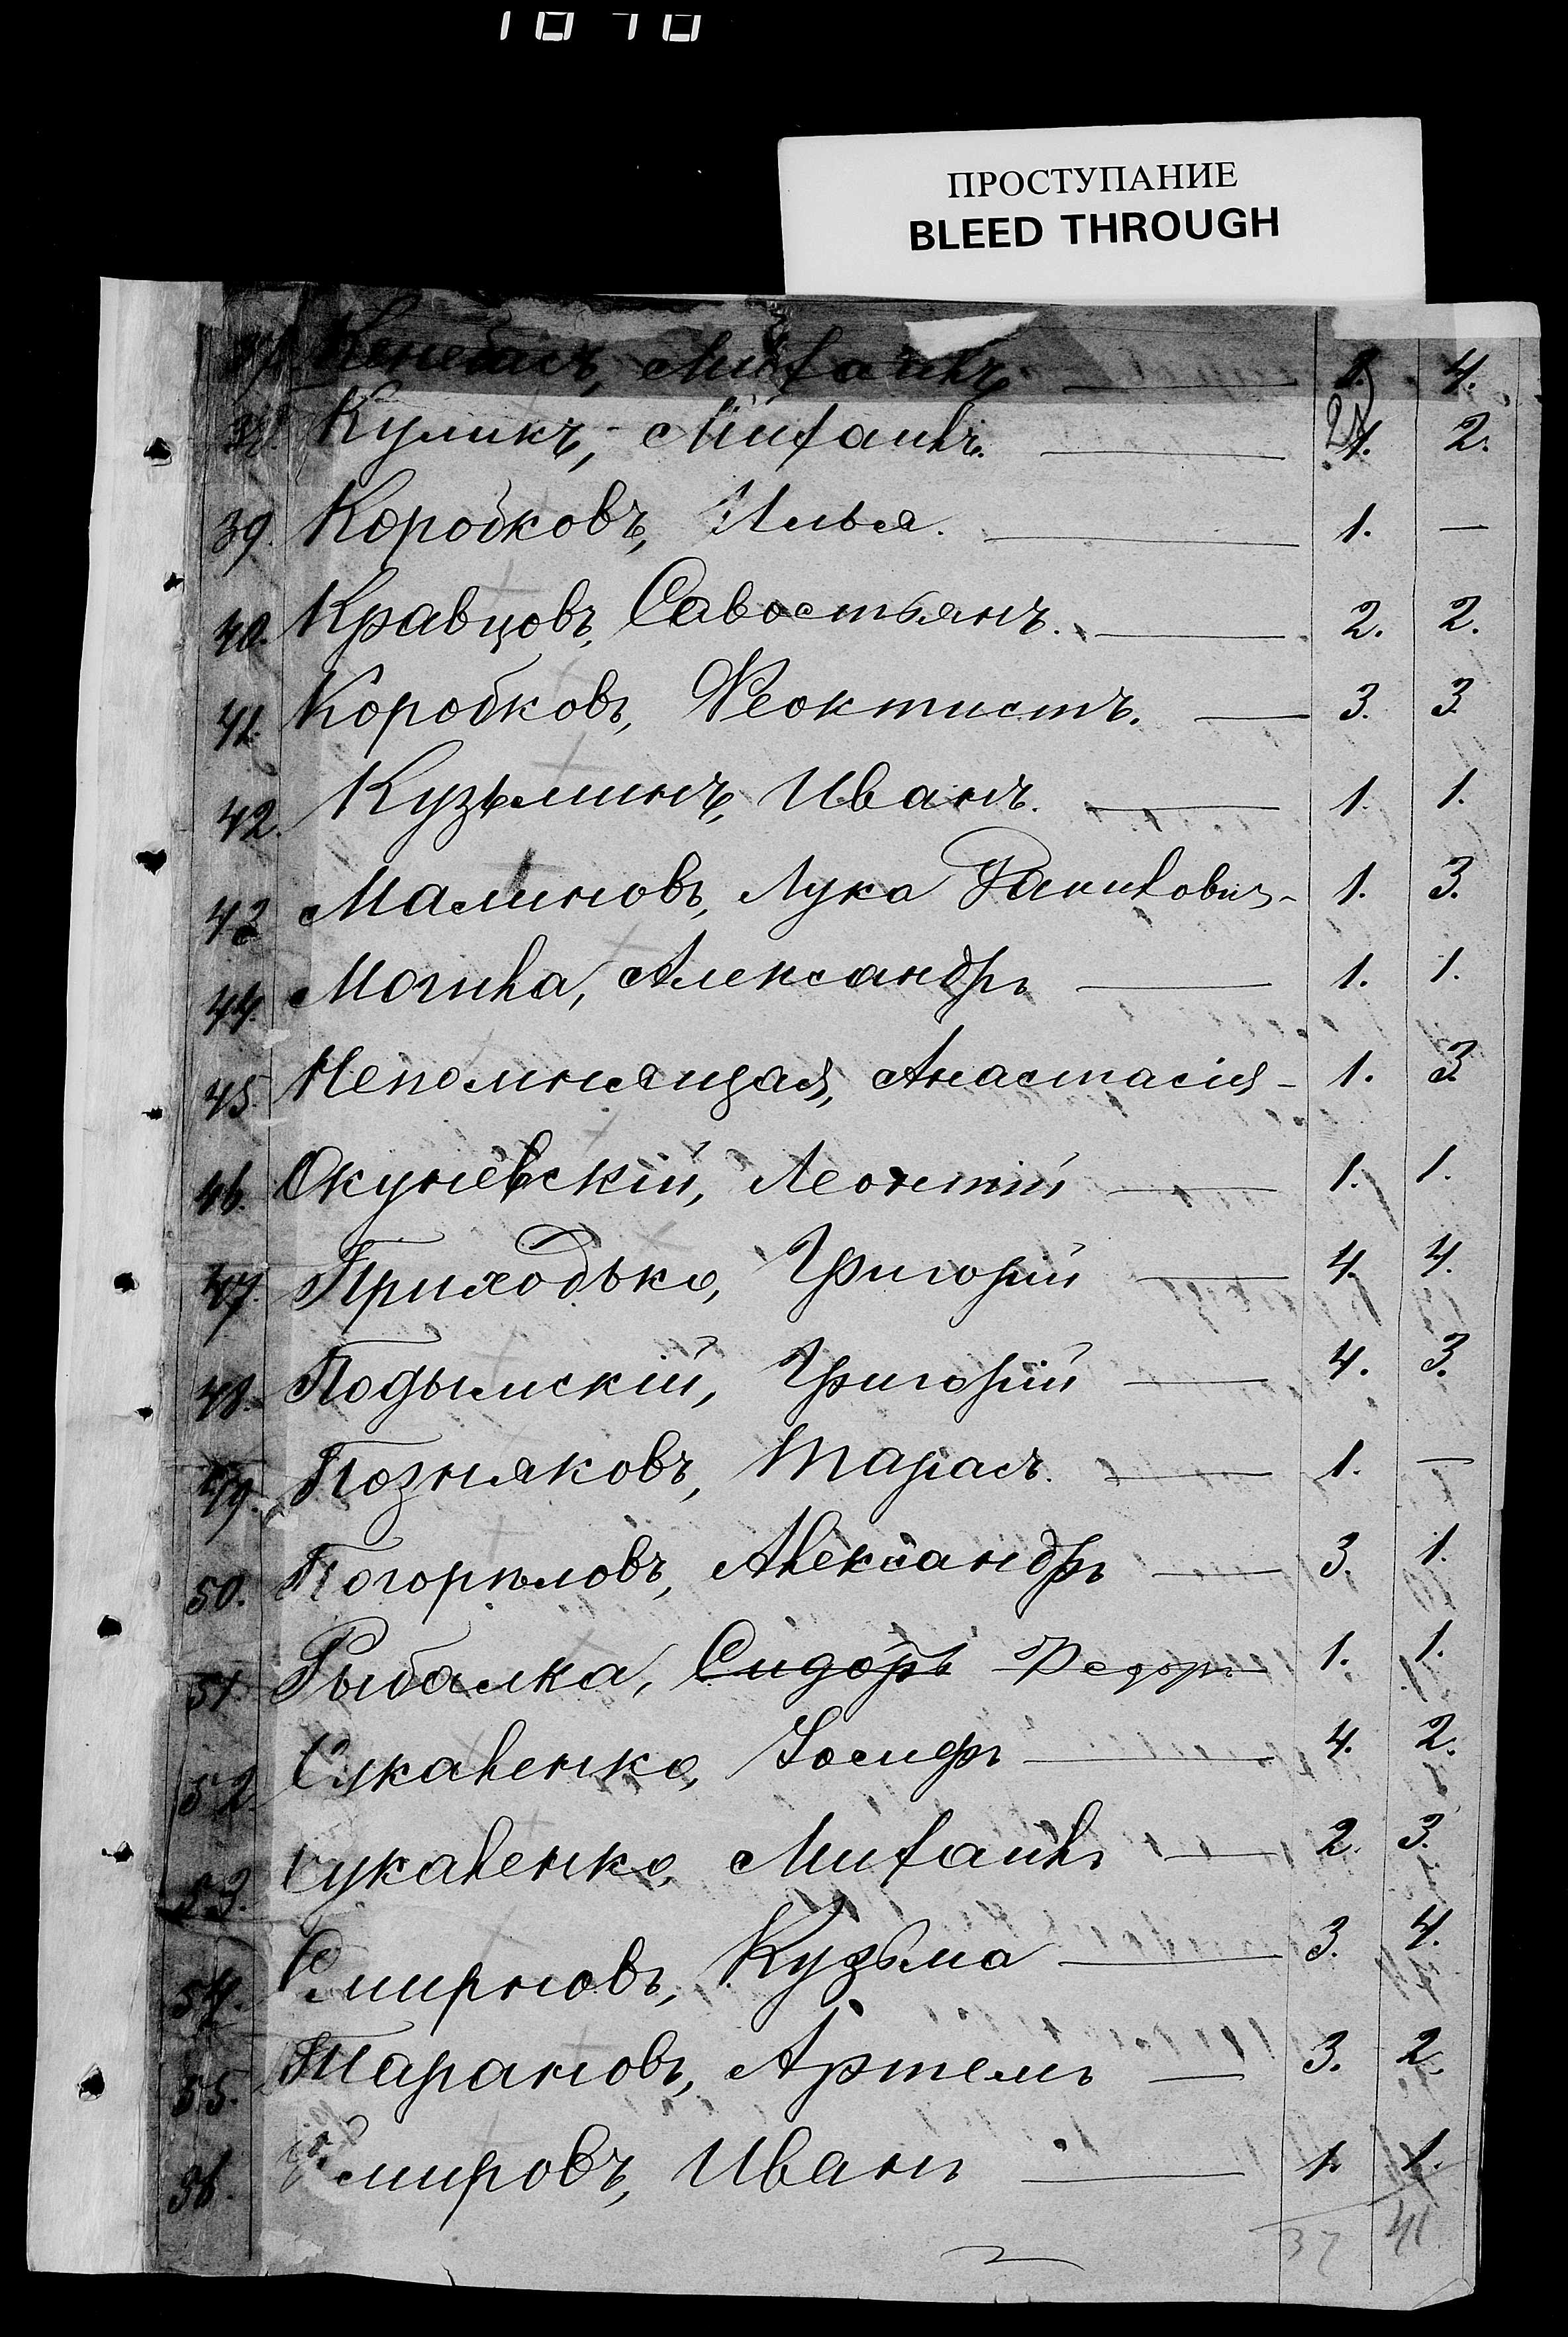 1070
ПРОСТУПАНИЕ
BLEED THROUGH
37. Михаилъ 4.
38. Куликъ, Михаилъ. 21. 2.
39. Коробковъ, Илья. 1. —
40. Кравцовъ, Савостьянъ. 2. 2.
41. Коробковъ, Феоктистъ. 3. 3.
42. Кузьминъ, Иванъ. 1. 1.
43. Малиновъ, Лука Данилович 1. 3.
44. Могила, Александръ 1. 1.
45. Непомнящая, Анастасія 1. 3.
46. Окуневскій, Леонтій 1. 1.
47. Приходько, Григорій 4. 4.
48. Подымскій, Григорій 4. 3.
49. Позняковъ, Тарасъ. 1. —
50. Погорѣловъ, Александръ 3. 1.
51. Рыбалка, Сидоръ Федоръ 1. 1.
52. Сукаленко, Іосифъ 4. 2.
53. Сукаленко, Михаилъ 2. 3.
54. Смирновъ, Кузьма 3. 4.
55. Тарановъ, Артемъ 3. 2.
56. Смировъ, Иванъ 1. 1.
37 41